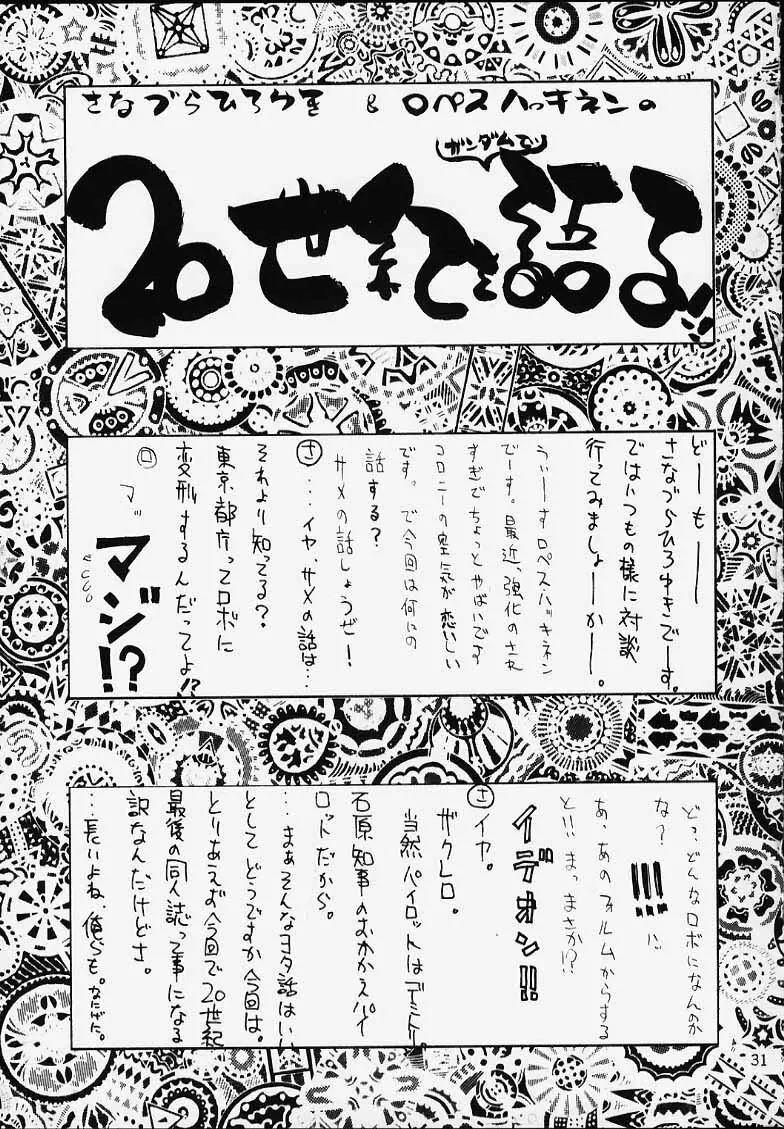 さなづらひろゆき & ロペスハッキネンの
ガンダムで
20世紀を語る!!
どーもーー
さなづらひろゆきでーす。
ではいつもの様に対談
行ってみましょーかー。
うぃーすロペスハッキネン
でーす。最近、強化のされ
すぎでちょっとやばいです
コロニーの空気が恋しい
です。で今回は何にの
話する?
サメの話しょうぜー!
さ …イヤ、サメの話は…
それより知ってる?
東京都庁ってロボに
変形するんだってよ!?
ロ マッ
マジ!?
どっ、どんなロボになんのか
な?
!!!
ハ
あ、あのフォルムからする
と!!まっまさか!?
イデオン!!
さ イヤ。
ザクレロ。
当然パイロットはデミトリー。
石原知事のおかかえパイ
ロットだから。
…まぁそんなヨタ話はいい
としてどうですか今回は。
とりあえず今回で20世紀
最後の同人誌って事になる
訳なんだけどさ。
…長いよね、俺らも。
31